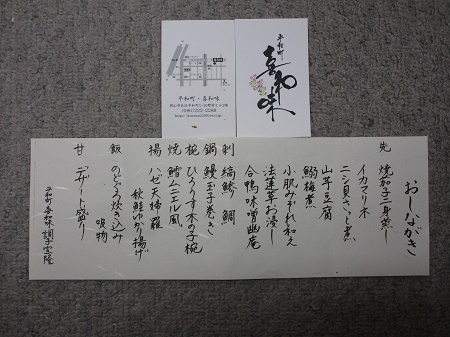 平和町
喜和味
平和町・喜和味
おしながき
先 焼茄子二身蒸し
イカマリネ
ニシ貝さっと煮
山芋豆腐
鰯梅煮
小肌みぞれ和え
法蓮草お浸し
合鴨味噌幽庵
刺 縞鯵 鯛
鍋 鰻玉子巻き
椀 ひろうす木の子椀
焼 鱈ムニエル風
揚 ハゼ天婦羅
秋鮭ゆかり揚げ
飯 のどぐろ炊き込み
吸物
甘 デザート盛り
平和町 喜和味